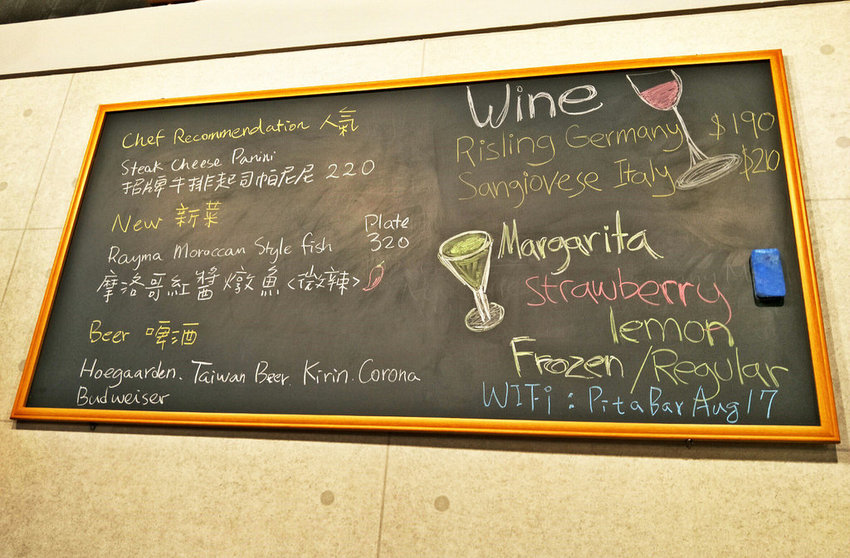 Chef Recommendation 人氣
Steak Cheese Panini
招牌牛排起司帕尼尼 220
New 新菜
Plate
Rayma Moroccan Style fish 320
摩洛哥紅醬燉魚<微辣>
Beer 啤酒
Hoegaarden. Taiwan Beer Kirin. Corona
Budweiser
Wine
Risling Germany $190
Sangiovese Italy $210
Margarita
Strawberry
lemon
Frozen/Regular
WIFi : PitaBar Aug 17